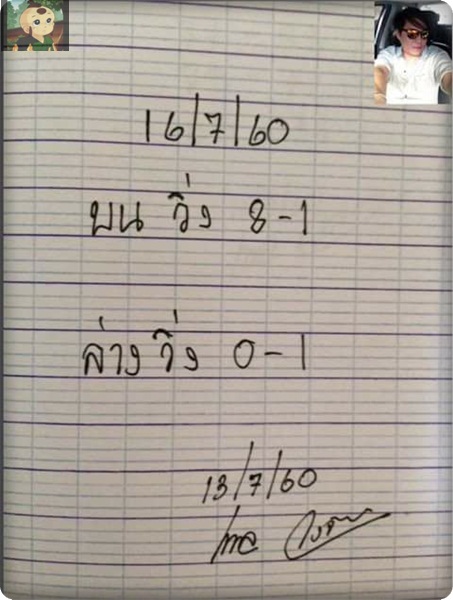 16/7/60
บน วิ่ง 8-1
ล่าง วิ่ง 0-1
13/7/60